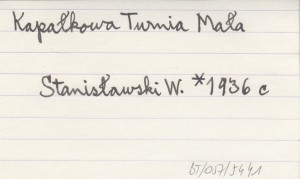 Kapałkowa Turnia Mała
Stanisławski W. *1936 c
BT/057/5441